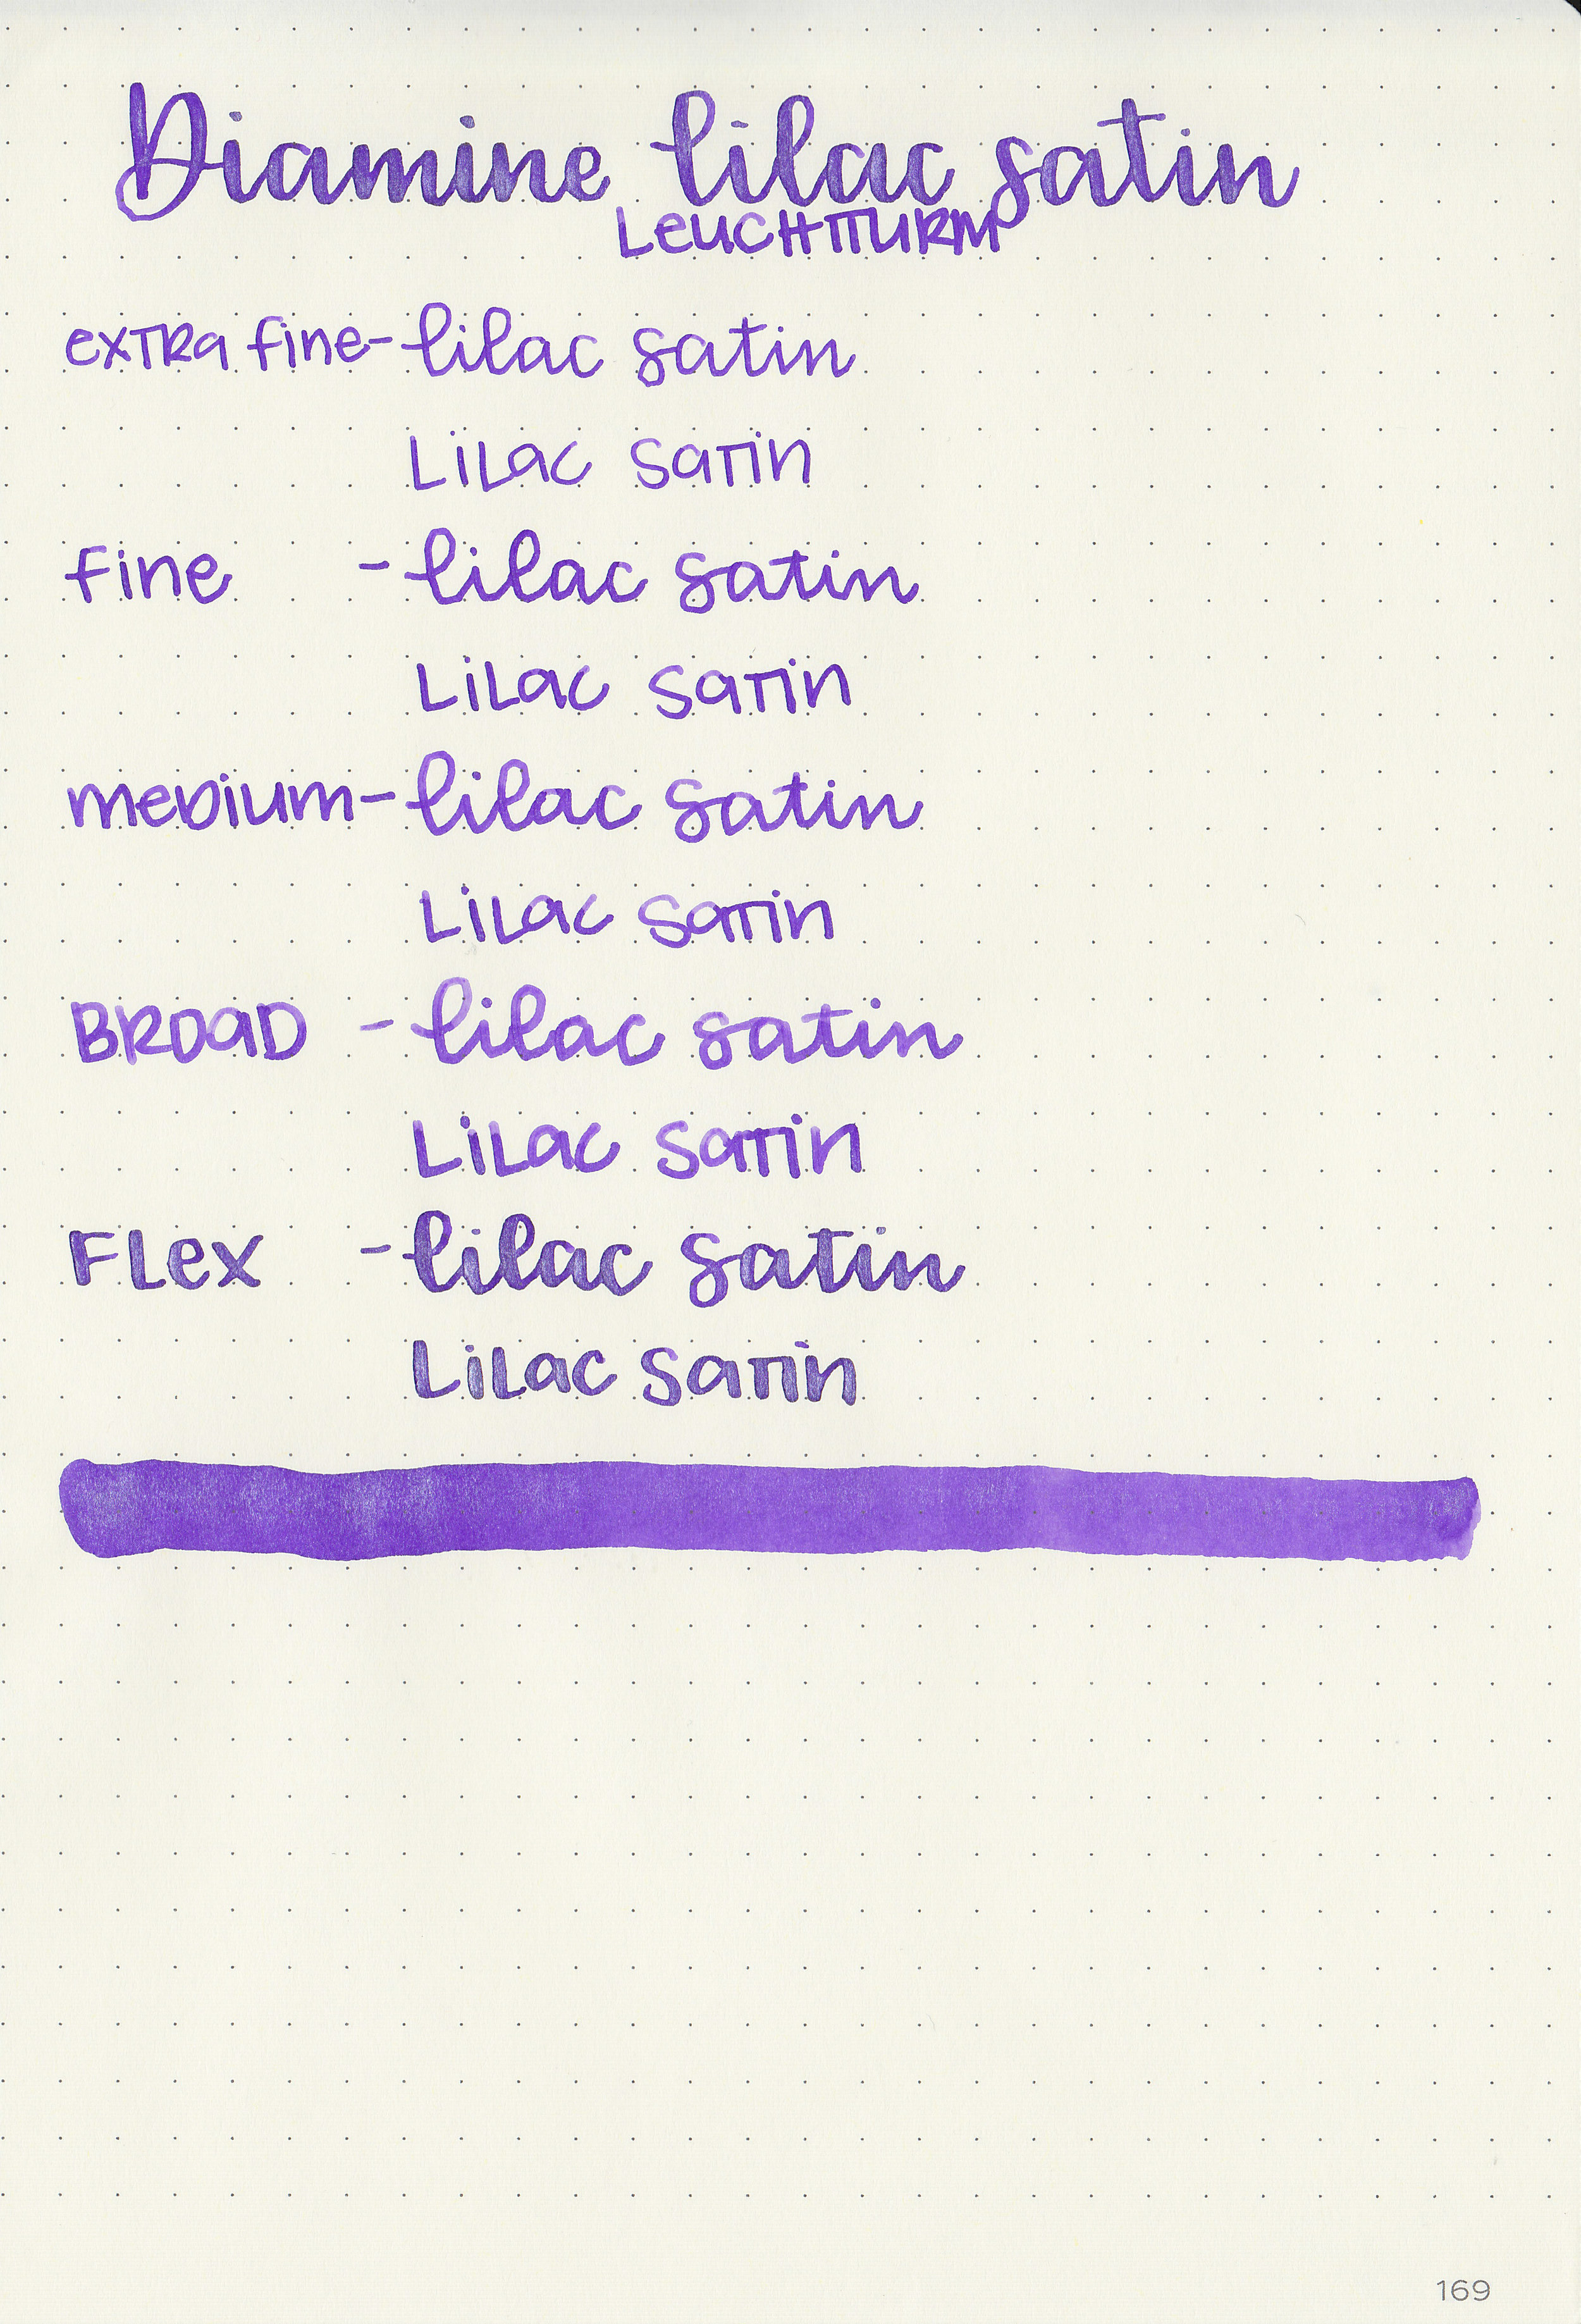 Diamine lilac satin
LeucHTTURM
exTRa fine - lilac satin
LiLac saTin
fine - lilac satin
LiLac saTin
meDium - lilac satin
LiLac saTin
BROaD - lilac satin
LiLac saTin
FLex - lilac satin
LiLac saTin
169